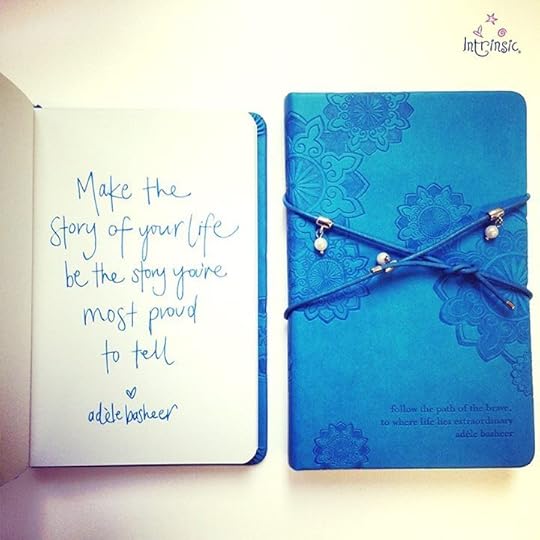 Intrinsic
Make the
story of your life
be the story you're
most proud
to tell
adèle basheer
follow the path of the brave,
to where life lies extraordinary
adèle basheer